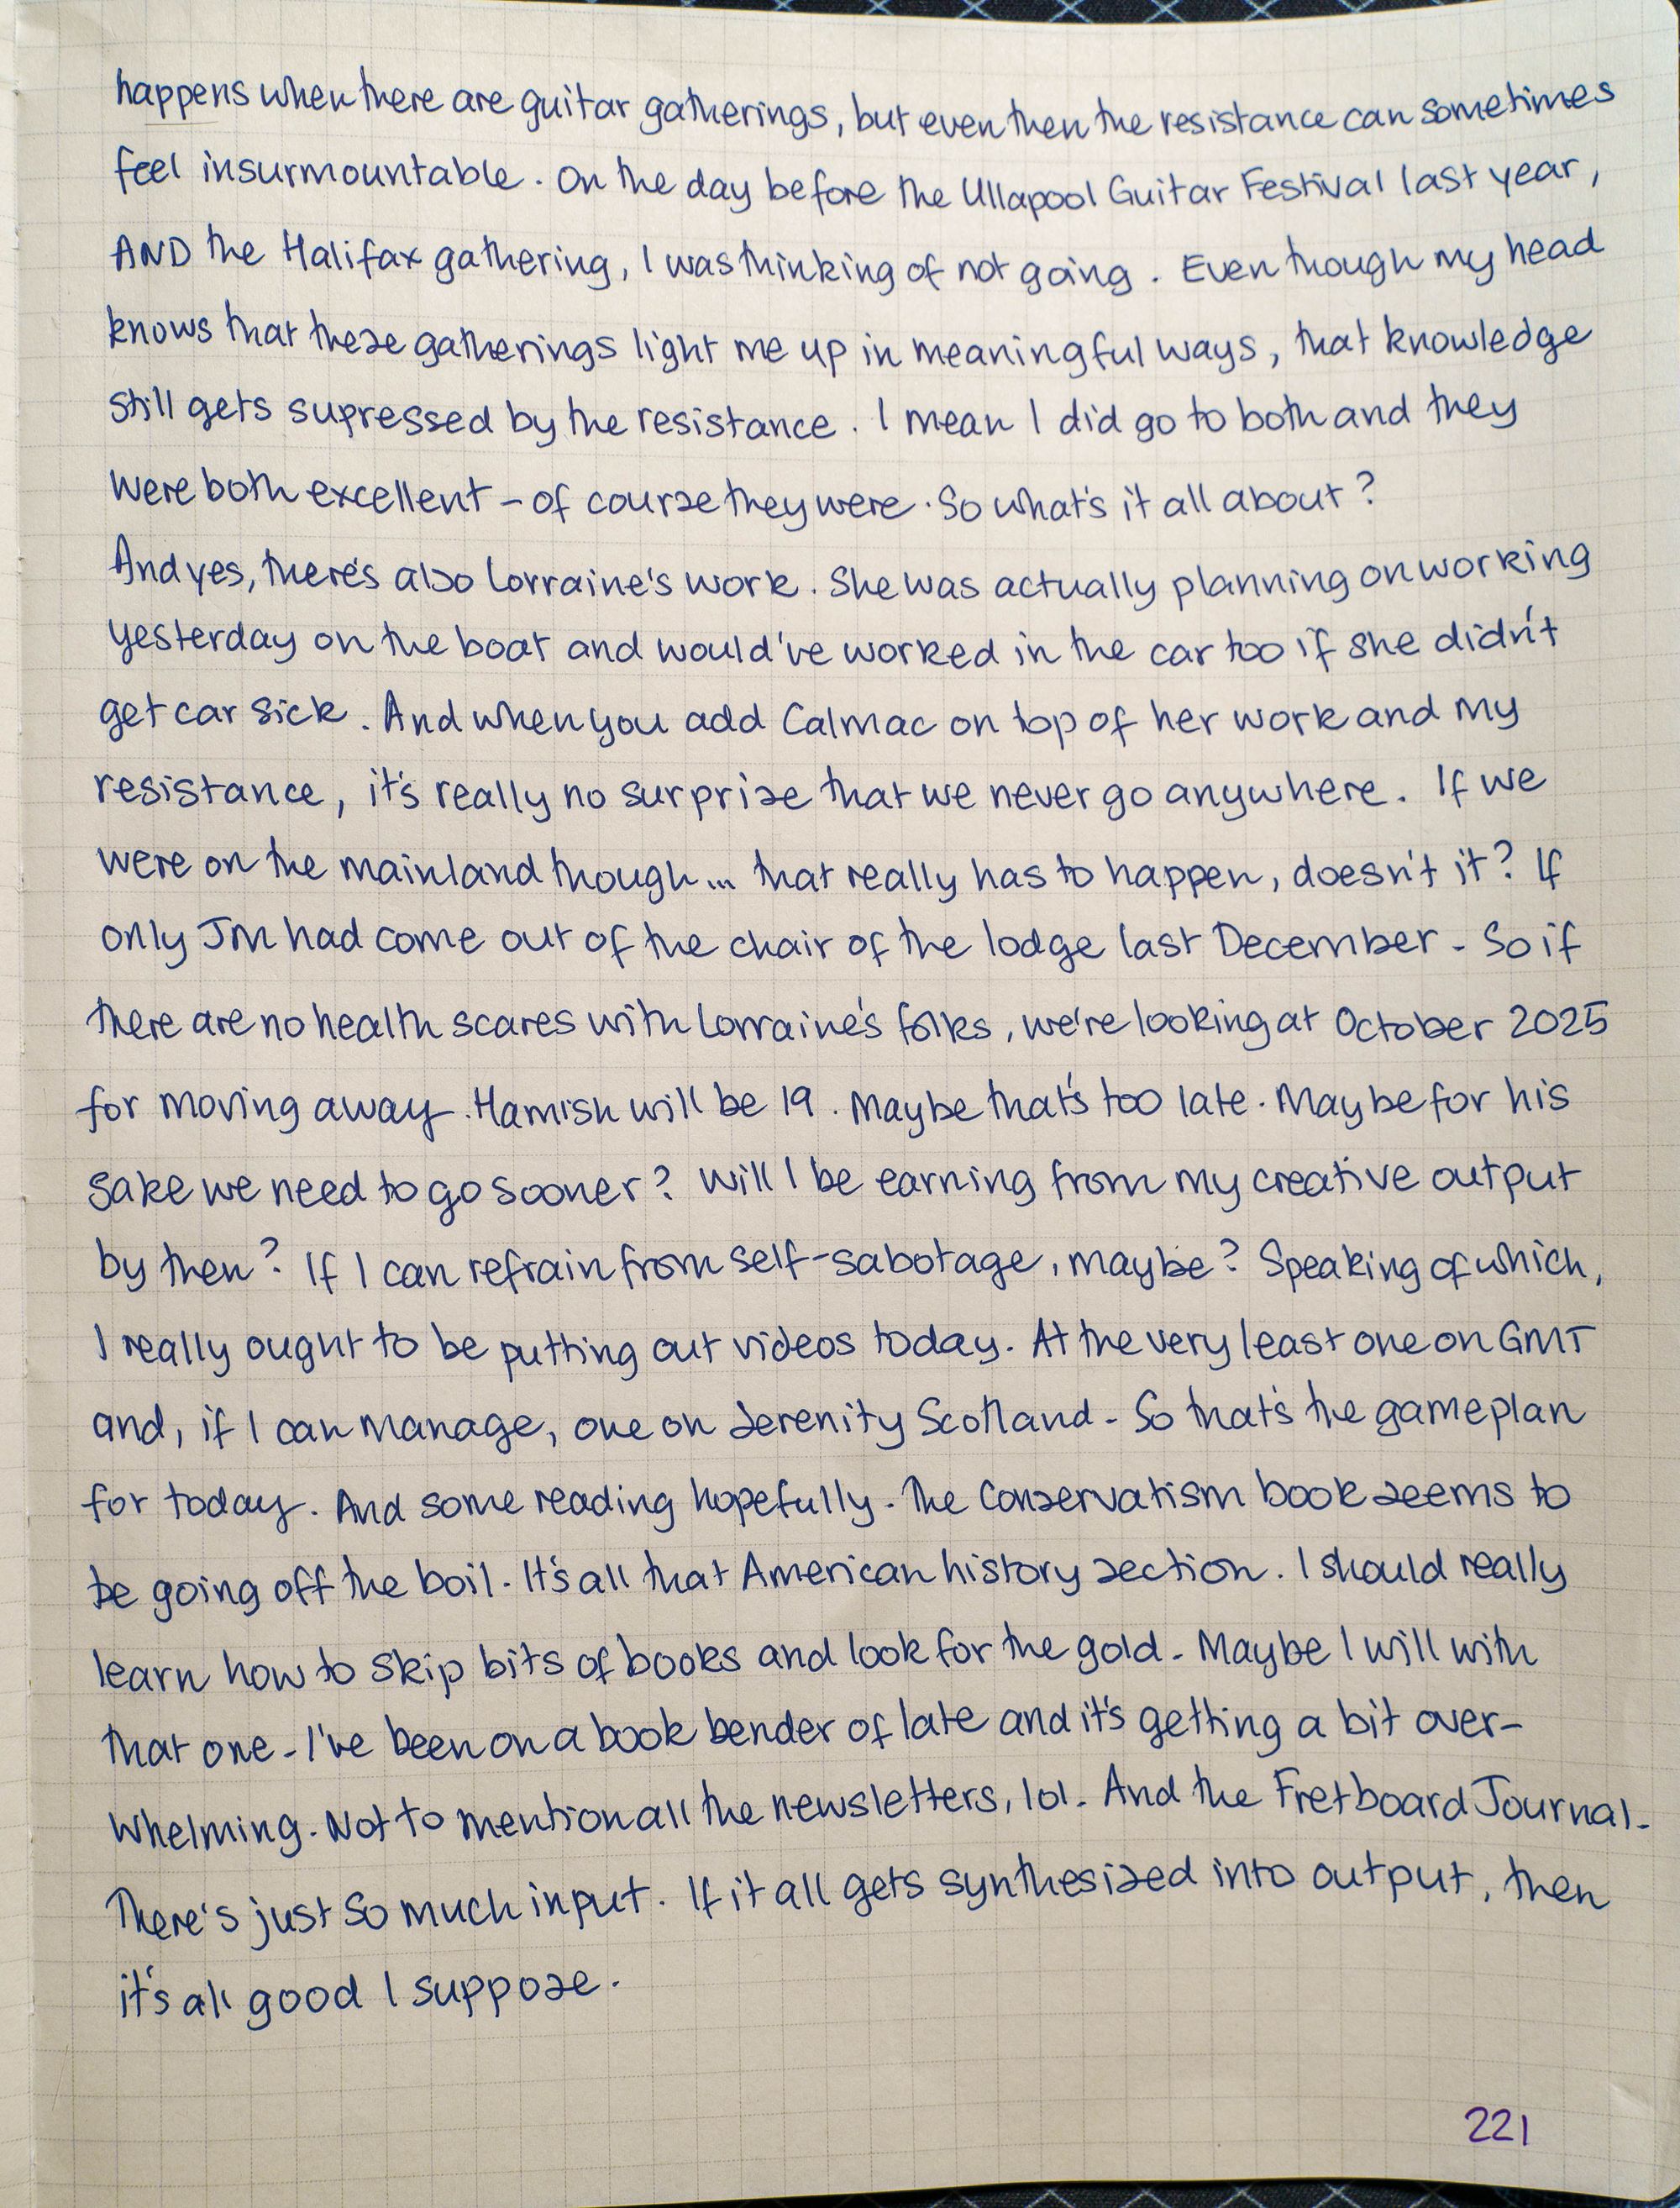 happens when there are guitar gatherings, but even then the resistance can sometimes
feel insurmountable. On the day before the Ullapool Guitar Festival last year,
AND the Halifax gathering, I was thinking of not going. Even though my head
knows that these gatherings light me up in meaningful ways, that knowledge
still gets supressed by the resistance. I mean I did go to both and they
were both excellent - of course they were. So what's it all about?
And yes, there's also Lorraine's work. She was actually planning on working
yesterday on the boat and would've worked in the car too if she didn't
get car sick. And when you add Calmac on top of her work and my
resistance, it's really no surprise that we never go anywhere. If we
were on the mainland though... that really has to happen, doesn't it? If
only Jm had come out of the chair of the lodge last December. So if
there are no health scares with Lorraine's folks, we're looking at October 2025
for moving away. Hamish will be 19. Maybe that's too late. Maybe for his
sake we need to go sooner? Will I be earning from my creative output
by then? If I can refrain from self-sabotage, maybe? Speaking of which,
I really ought to be putting out videos today. At the very least one on GMT
and, if I can manage, one on Serenity Scotland. So that's the gameplan
for today. And some reading hopefully. The Conservatism book seems to
be going off the boil. It's all that American history section. I should really
learn how to skip bits of books and look for the gold. Maybe I will with
that one. I've been on a book bender of late and it's getting a bit over-
whelming. Not to mention all the newsletters, lol. And the Fretboard Journal.
There's just so much input. If it all gets synthesized into output, then
it's all good I suppose.
221